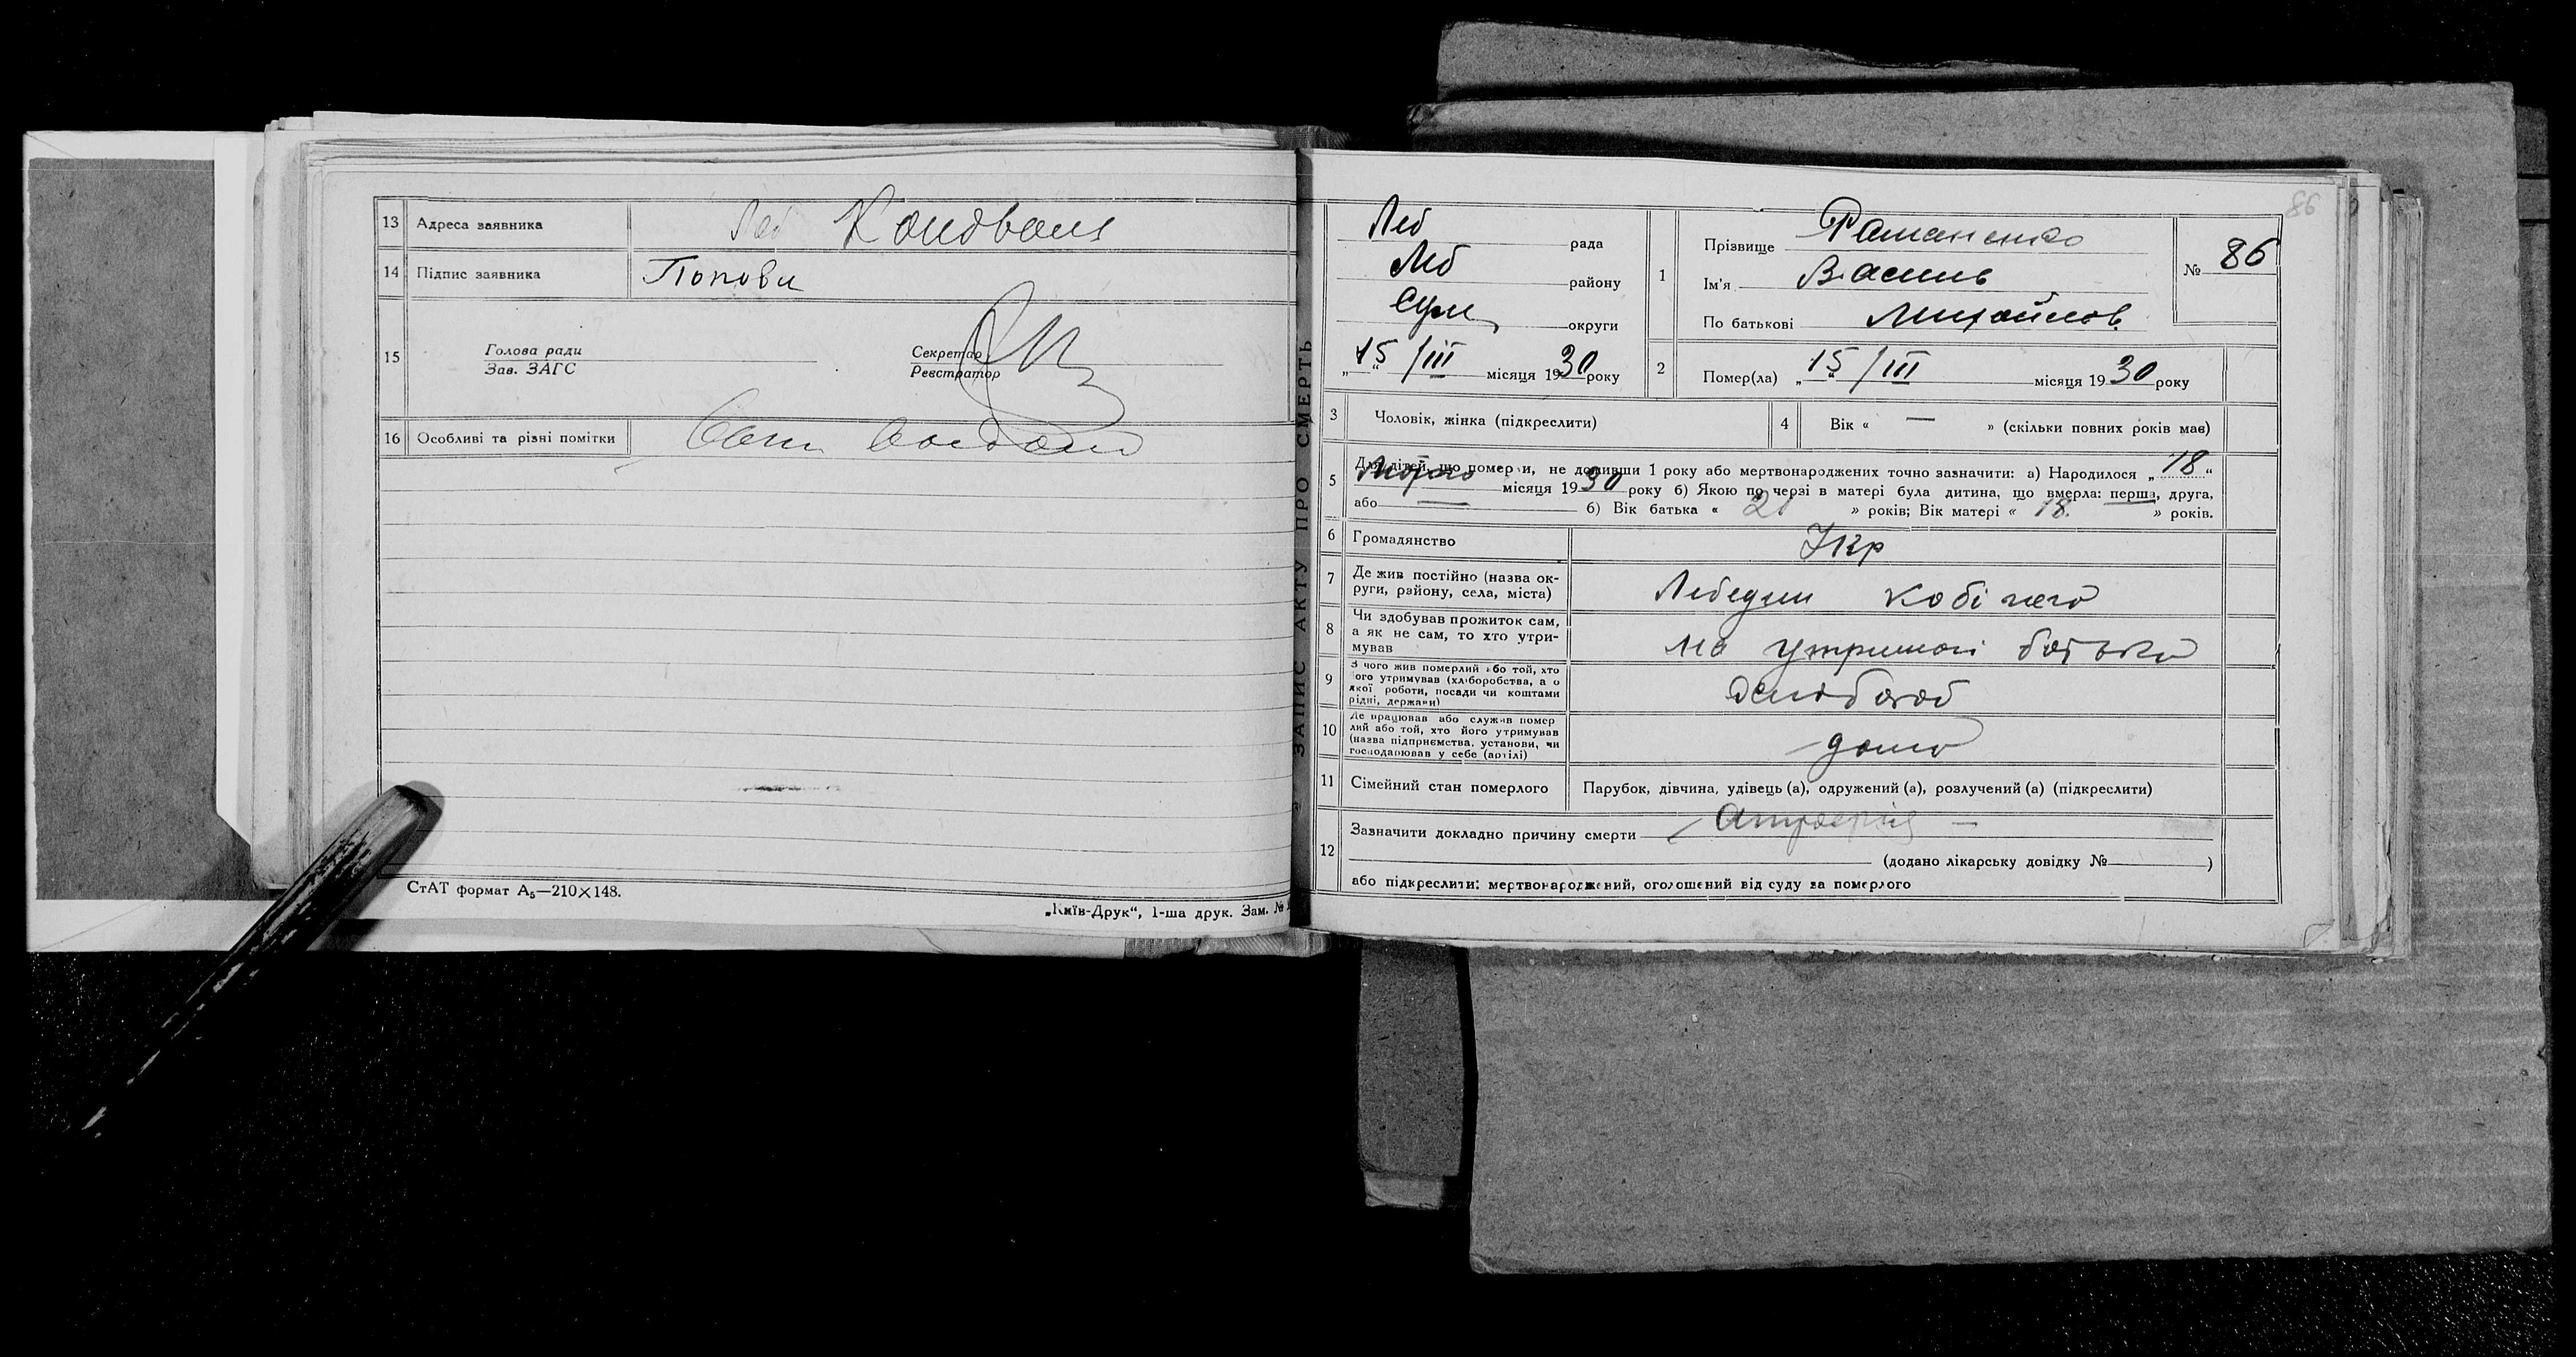 13 Адреса заявника Леб
14 Підпис заявника Попови
15 Голова ради
Зав. ЗАГС
Секретар
Реєстратор
16 Особливі та різні помітки
СтАТ формат А5—210×148.
„Київ-Друк“, 1-ша друк. Зам. №
ЗАПИС АКТУ ПРО СМЕРТЬ
86
Леб рада
Леб району
Сум округи
„15“ /III місяця 1930 року
1 Прізвище Раманенко
Ім'я Василь
По батькові Михайлов
№ 86
2 Помер(ла) „15“ /III місяця 1930 року
3 Чоловік, жінка (підкреслити)
4 Вік « — » (скільки повних років має)
5 Для дітей, що померли, не доживши 1 року або мертвонароджених точно зазначити: а) Народилося „18“
Лютого місяця 1930 року б) Якою по черзі в матері була дитина, що вмерла: перша, друга,
або — б) Вік батька « 21 » років; Вік матері « 18 » років.
6 Громадянство Укр
7 Де жив постійно (назва ок-
руги, району, села, міста) Лебедин
8 Чи здобував прожиток сам,
а як не сам, то хто утри-
мував на утримані батька
9 З чого жив померлий або той, хто
його утримував (хліборобства, а о
якої роботи, посади чи коштами
рідні, держави)
10 Де працював або служив помер
лий або той, хто його утримував
(назва підприємства, установи, чи
господарював у себе (артілі) дома
11 Сімейний стан померлого Парубок, дівчина, удівець (а), одружений (а), розлучений (а) (підкреслити)
12 Зазначити докладно причину смерти Атрофія —
(додано лікарську довідку № )
або підкреслити: мертвонароджений, оголошений від суду за померлого